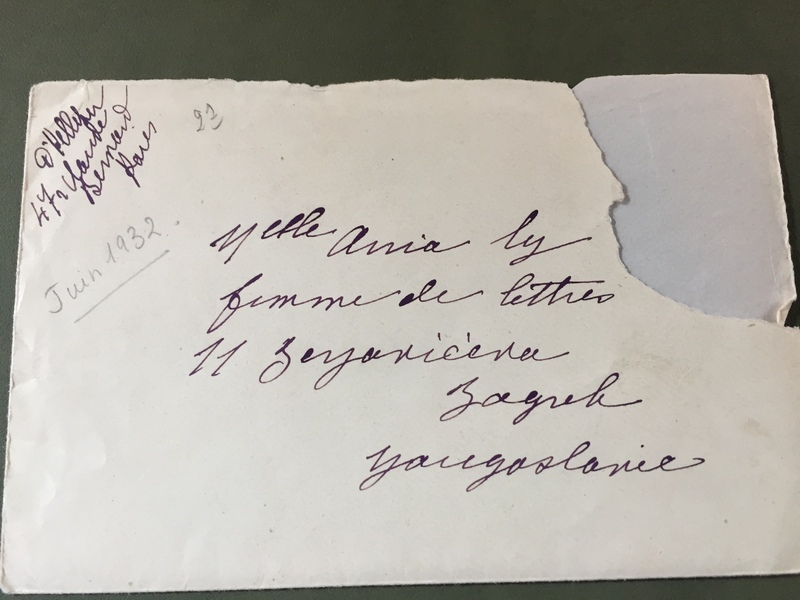 47 r Claude
Bernard
Paris
22
Juin 1932
Melle Ania Ly
femme de lettres
11
Zagreb
Yougoslavie